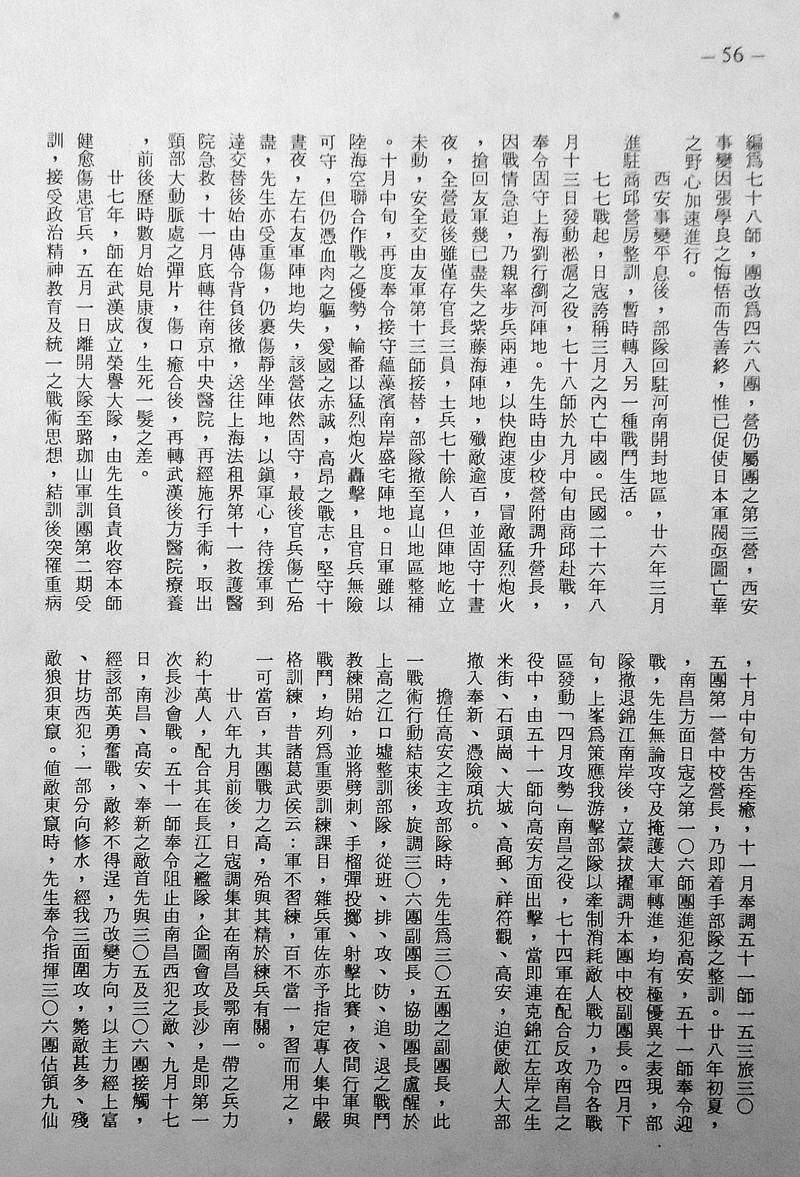 — 56 —
編爲七十八師，團改爲四六八團，營仍屬團之第三營，西安
事變因張學良之悔悟而告善終，惟已促使日本軍閥亟圖亡華
之野心加速進行。
西安事變平息後，部隊回駐河南開封地區，廿六年三月
進駐商邱營房整訓，暫時轉入另一種戰鬥生活。
七七戰起，日寇誇稱三月之內亡中國。民國二十六年八
月十三日發動淞滬之役，七十八師於九月中旬由商邱赴戰，
奉令固守上海劉行瀏河陣地。先生時由少校營附調升營長，
因戰情急迫，乃親率步兵兩連，以快跑速度，冒敵猛烈炮火
，搶回友軍幾已盡失之紫藤海陣地，殲敵逾百，並固守十晝
夜，全營最後雖僅存官長三員，士兵七十餘人，但陣地屹立
未動，安全交由友軍第十三師接替，部隊撤至崑山地區整補
。十月中旬，再度奉令接守蘊藻濱南岸盛宅陣地。日軍雖以
陸海空聯合作戰之優勢，輪番以猛烈炮火轟擊，且官兵無險
可守，但仍憑血肉之軀，愛國之赤誠，高昂之戰志，堅守十
晝夜，左右友軍陣地均失，該營依然固守，最後官兵傷亡殆
盡，先生亦受重傷，仍裹傷靜坐陣地，以鎭軍心，待援軍到
達交替後始由傳令背負後撤，送往上海法租界第十一救護醫
院急救，十一月底轉往南京中央醫院，再經施行手術，取出
頸部大動脈處之彈片，傷口癒合後，再轉武漢後方醫院療養
，前後歷時數月始見康復，生死一髮之差。
廿七年，師在武漢成立榮譽大隊，由先生負責收容本師
健愈傷患官兵，五月一日離開大隊至珞珈山軍訓團第二期受
訓，接受政治精神教育及統一之戰術思想，結訓後突罹重病
，十月中旬方告痊癒，十一月奉調五十一師一五三旅三〇
五團第一營中校營長，乃即着手部隊之整訓。廿八年初夏，
，南昌方面日寇之第一〇六師團進犯高安，五十一師奉令迎
戰，先生無論攻守及掩護大軍轉進，均有極優異之表現，部
隊撤退錦江南岸後，立蒙拔擢調升本團中校副團長。四月下
旬，上峯爲策應我游擊部隊以牽制消耗敵人戰力，乃令各戰
區發動「四月攻勢」南昌之役，七十四軍在配合反攻南昌之
役中，由五十一師向高安方面出擊，當即連克錦江左岸之生
米街、石頭崗、大城、高郵、祥符觀、高安，迫使敵人大部
撤入奉新、憑險頑抗。
擔任高安之主攻部隊時，先生爲三〇五團之副團長，此
一戰術行動結束後，旋調三〇六團副團長，協助團長盧醒於
上高之江口墟整訓部隊，從班、排、攻、防、追、退之戰鬥
教練開始，並將劈刺、手榴彈投擲、射擊比賽，夜間行軍與
戰鬥，均列爲重要訓練課目，雜兵軍佐亦予指定專人集中嚴
格訓練，昔諸葛武侯云：軍不習練，百不當一，習而用之，
一可當百，其團戰力之高，殆與其精於練兵有關。
廿八年九月前後，日寇調集其在南昌及鄂南一帶之兵力
約十萬人，配合其在長江之艦隊，企圖會攻長沙，是即第一
次長沙會戰。五十一師奉令阻止由南昌西犯之敵、九月十七
日，南昌、高安、奉新之敵首先與三〇五及三〇六團接觸，
經該部英勇奮戰，敵終不得逞，乃改變方向，以主力經上富
、甘坊西犯；一部分向修水，經我三面圍攻，斃敵甚多、殘
敵狼狽東竄。值敵東竄時，先生奉令指揮三〇六團佔領九仙